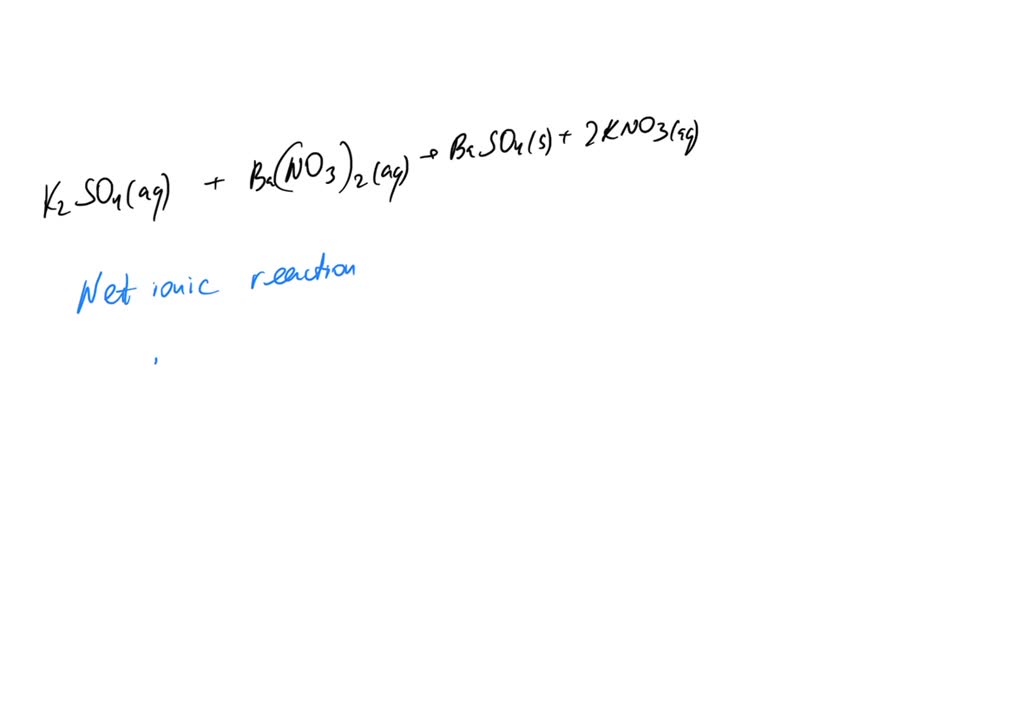 K₂SO₄(aq) + Ba(NO₃)₂(aq) → BaSO₄(s) + 2KNO₃(aq)
Net ionic reaction